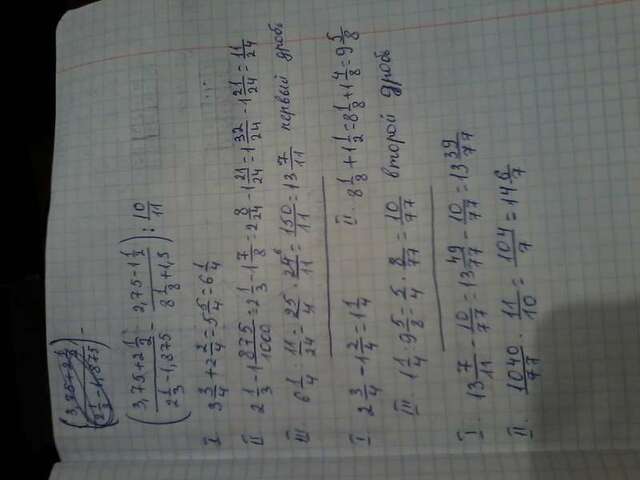 (3,75+2 1/2 / 2 1/3 - 1,875 - 2,75-1 1/2 / 8 1/8 + 1,5) : 10/11
I 3 3/4 + 2 2/4 = 5 5/4 = 6 1/4
II 2 1/3 - 1 875/1000 = 2 1/3 - 1 7/8 = 2 8/24 - 1 21/24 = 1 32/24 - 1 21/24 = 11/24
III 6 1/4 : 11/24 = 25/4 · 24/11 = 150/11 = 13 7/11 первый дробь
I 2 3/4 - 1 2/4 = 1 1/4
II. 8 1/8 + 1 1/2 = 8 1/8 + 1 4/8 = 9 5/8
III 1 1/4 : 9 5/8 = 5/4 · 8/77 = 10/77 второй дробь
I. 13 7/11 - 10/77 = 13 49/77 - 10/77 = 13 39/77
II. 1040/77 · 11/10 = 104/7 = 14 6/7